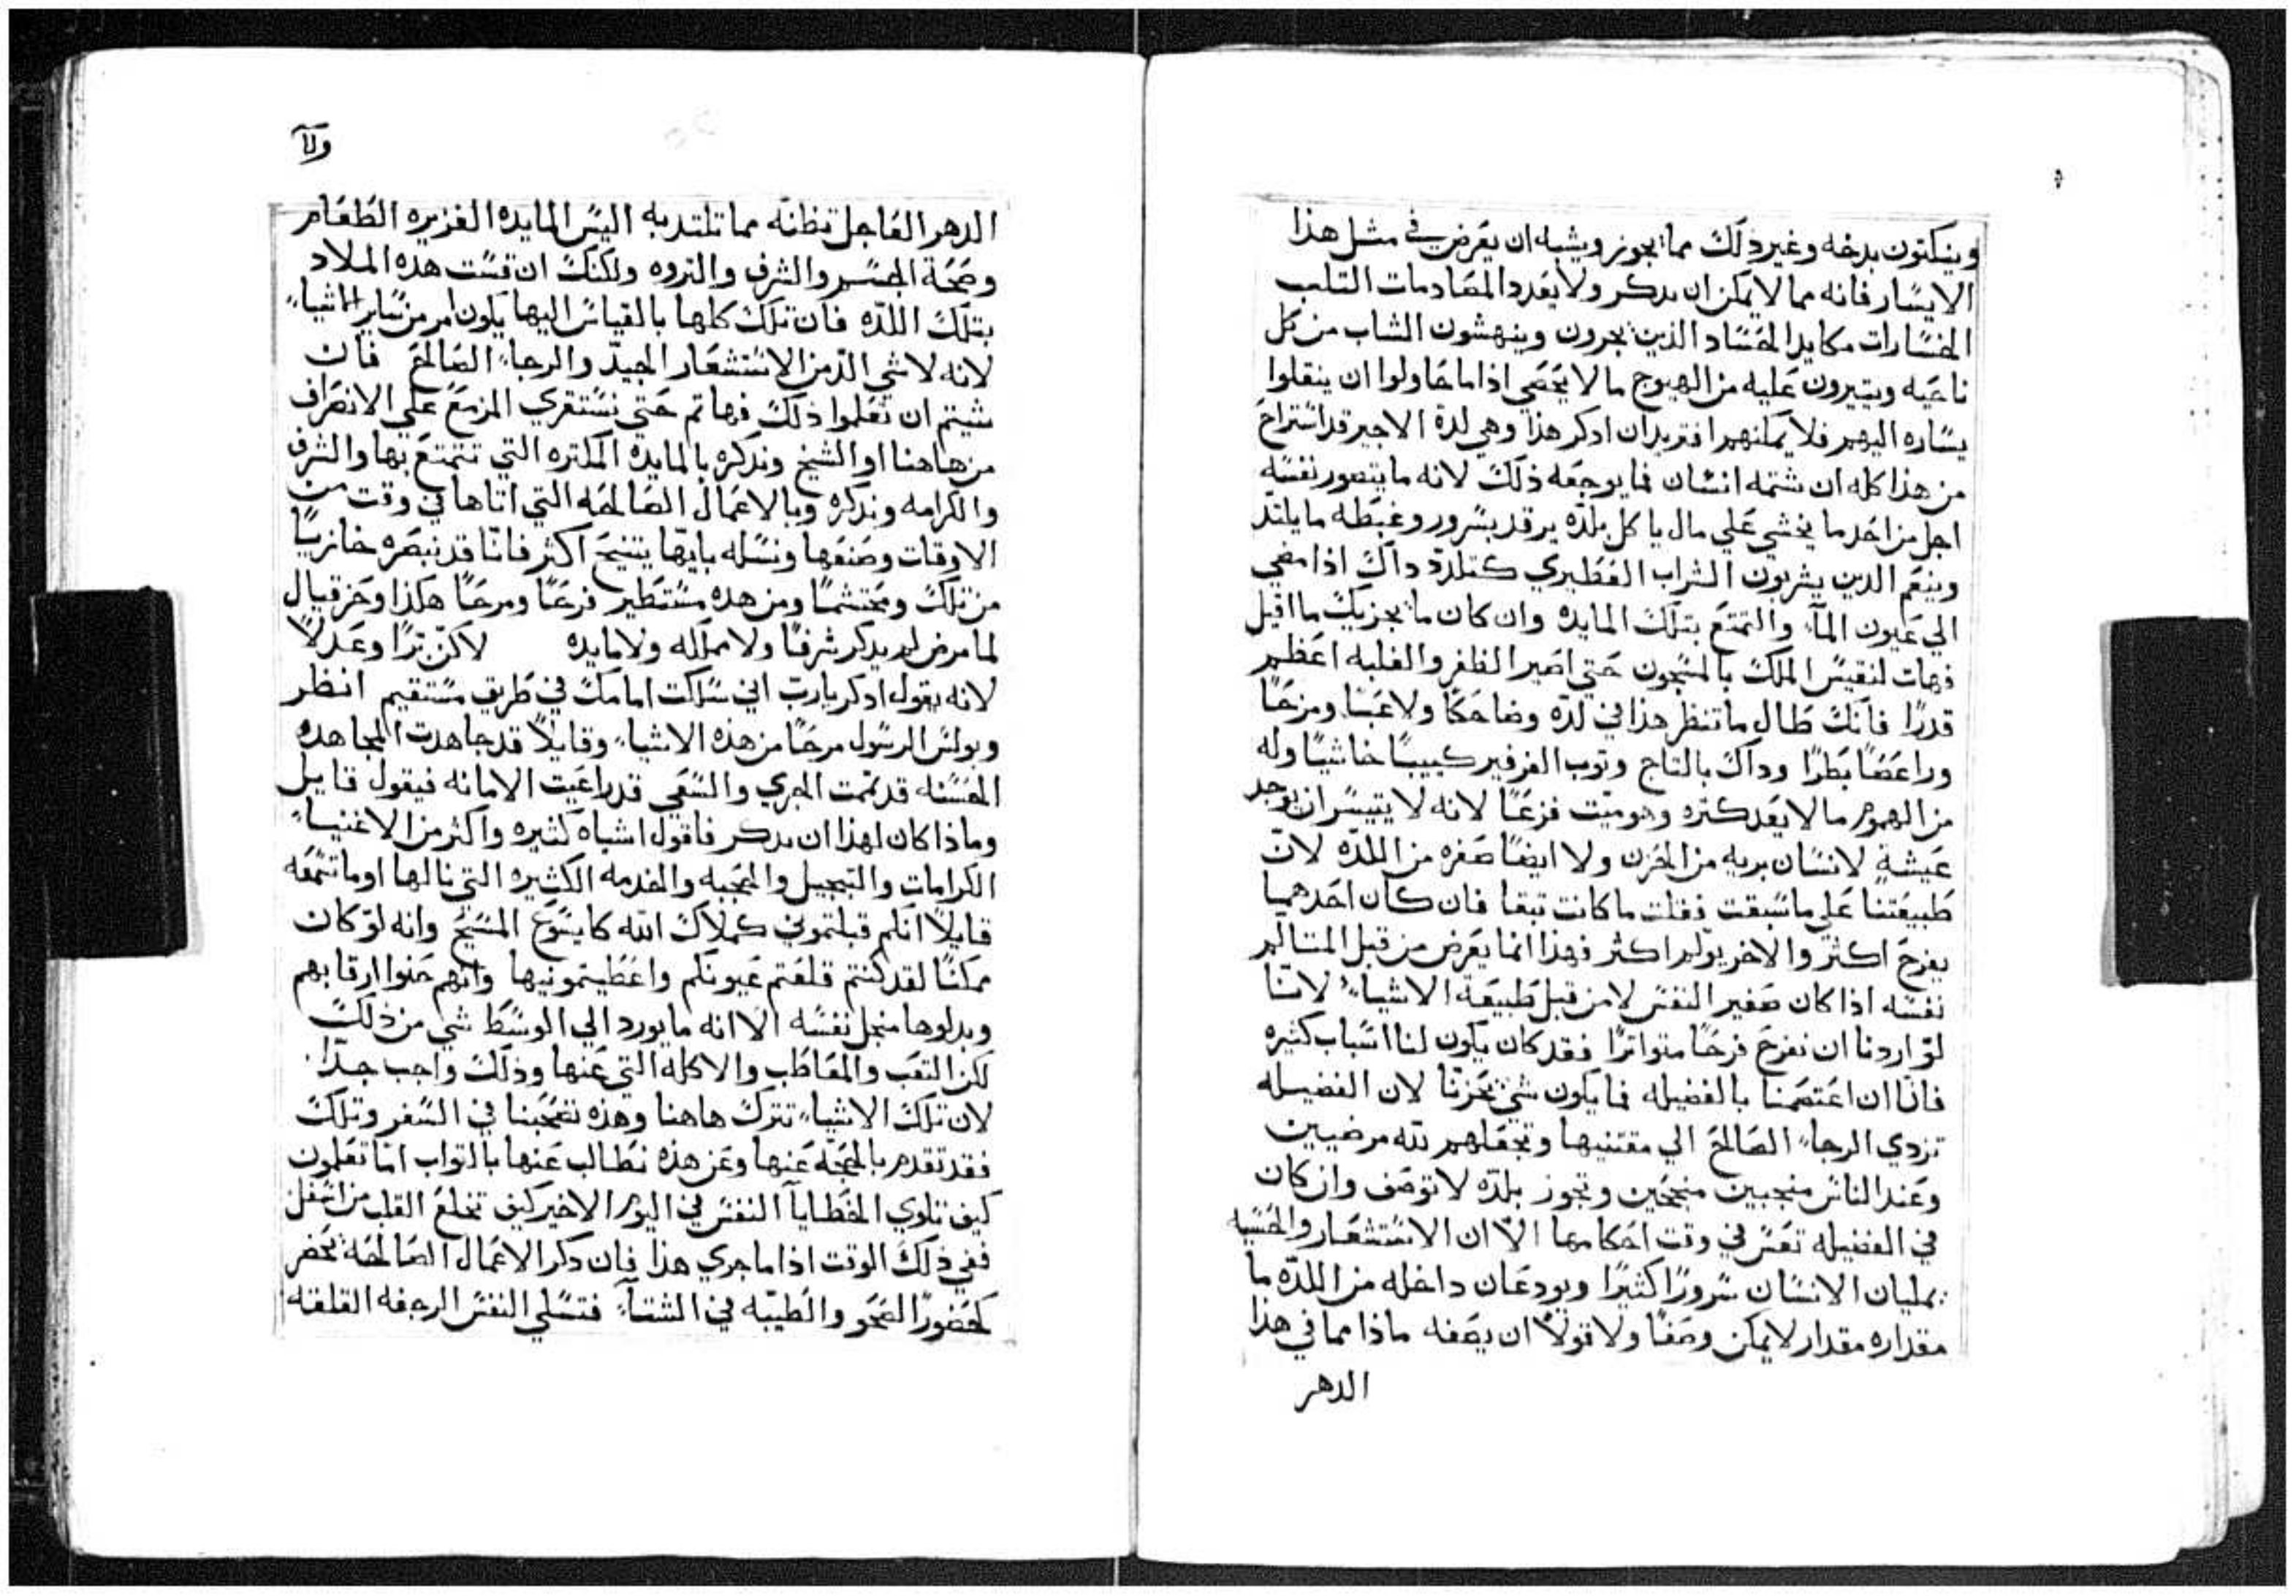 وينكتون بدخه وغير ذلك مما يجوز ويشبه ان يعرض في مثل هذا
الايسار فانه مما لا يمكن ان يدكر ولا يعدد المصادمات التلب
الخسارات مكايد الحساد الذين يجرون وينهشون الشاب من كل
ناحيه ويتيرون عليه من الهيوج ما لا يحصي اذا ما حاولوا ان ينقلوا
يساره اليهم فلا يمكنهم افتريد ان ادكر هذا وهي لدة الاجير قد استراح
من هذا كله ان شتمه انسان فما يوجعه ذلك لانه ما يتصور نفسه
اجل من احد ما يخشي علي مال ياكل بلده يرقد بسرور وغبطه ما يلتد
وينعم الدين يشربون الشراب العطيري كتلدد داك اذا مضي
الي عيون الماء والتمتع بتلك المايده وان كان ما يجزيك ما اقيل
فهات لنقيس الملك بالمسجون حتي اصير الظفر والغلبه اعظم
قدرًا فانك طال ما تنظر هذا في لدة وضاحكًا ولاعبًا ومزحًا
وراعصًا بطرًا وداك بالتاج وتوب الفرفير كييبًا خاشيًا وله
من الهموم ما لا يعد كتره وهو ميت فزعًا لانه لا يتيسر ان يوجد
عيشة لانسان بريه من الحزن ولا ايضًا صفره من اللده لان
طبيعتنا علي ما سبقت فقلت ما كانت تبقا فان كان احدهما
يفرح اكثر والاخر يولم اكثر فهذا انما يعرض من قبل المتالم
نفسه اذا كان صغير النفس لا من قبل طبيعة الاشياء لاننا
لو اردنا ان نفرح فرحًا متواترًا فقد كان يكون لنا اسباب كثيره
فانا ان اعتصمنا بالفضيله فما يكون شي يحزننا لان الفضيله
تزدي الرجاء الصالح الي مقتنيها وتجعلهم لله مرضيين
وعند الناس منجبين منجحين وتجوز بلده لا توصف وان كان
في الفضيله تعس في وقت احكامها الا ان الاستشعار والحسبه
يمليان الانسان سرورًا كثيرًا ويودعان داخله من اللده ما
مقداره مقدار لا يمكن وصفًا ولا قولًا ان يصفه ماذا مما في هذا
الدهر
ولا
الدهر العاجل تظنه مما تلتد به اليس المايده الغزيره الطعام
وصحة الجسم والشرف والتروه ولكنك ان قست هده الملاد
بتلك اللده فان تلك كلها بالقياس اليها يكون امر من ساير الاشياء
لانه لا شي الد من الاستشعار الجيد والرجاء الصالح فان
شيتم ان تعلموا ذلك فهاتم حتي نستقري المزمع علي الانصراف
من هاهنا او الشيخ وندكره بالمايده المكتره التي تتمتع بها والشرف
والكرامه وندكره وبالاعمال الصالحه التي اتاها في وقت من
الاوقات وصنعها ونسله بايها يتنيح اكثر فانا قد نبصره خازيًا
من تلك ومحتشمًا ومن هده مستطير فرحًا ومرحًا هكذا وحزقيال
لما مرض لم يدكر شرفًا ولا مملكه ولا مايده لاكن برًا وعدلًا
لانه يقول ادكر يا رب اني سلكت امامك في طريق مستقيم انظر
وبولس الرسول مرحًا من هذه الاشياء وقايلًا قد جاهدت المجاهده
الحسنه قد تممت الجري والسعي قد راعيت الامانه فيقول قايل
وماذا كان لهذا ان يدكر فاقول اشباه كثيره واكثر من الاغنياء
الكرامات والتبجيل والمحبه والخدمه الكثيره التي نالها اوما تسمعه
قايلًا انكم قبلتموني كملاك الله كايسوع المسيح وانه لو كان
ممكنًا لقد كنتم قلعتم عيونكم واعطيتمونيها وانهم حنوا ارقابهم
وبدلوها من اجل نفسه الا انه ما يورد الي الوسط شي من ذلك
لكن التعب والمعاطب والاكله التي عنها وذلك واجب جدًا
لان تلك الاشياء تترك هاهنا وهذه تصحبنا في السفر وتلك
فقد تقدم بالحجه عنها وعن هذه نطالب عنها بالتواب اما تعلمون
كيف تلوي الخطايا النفس في اليوم الاخير كيف تخلع القلب من اسفل
ففي ذلك الوقت اذا ما جري هذا فان دكر الاعمال الصالحه تحضر
كحضور الصحو والطيبه في الشتاء فتسلي النفس الرجفه القلقه